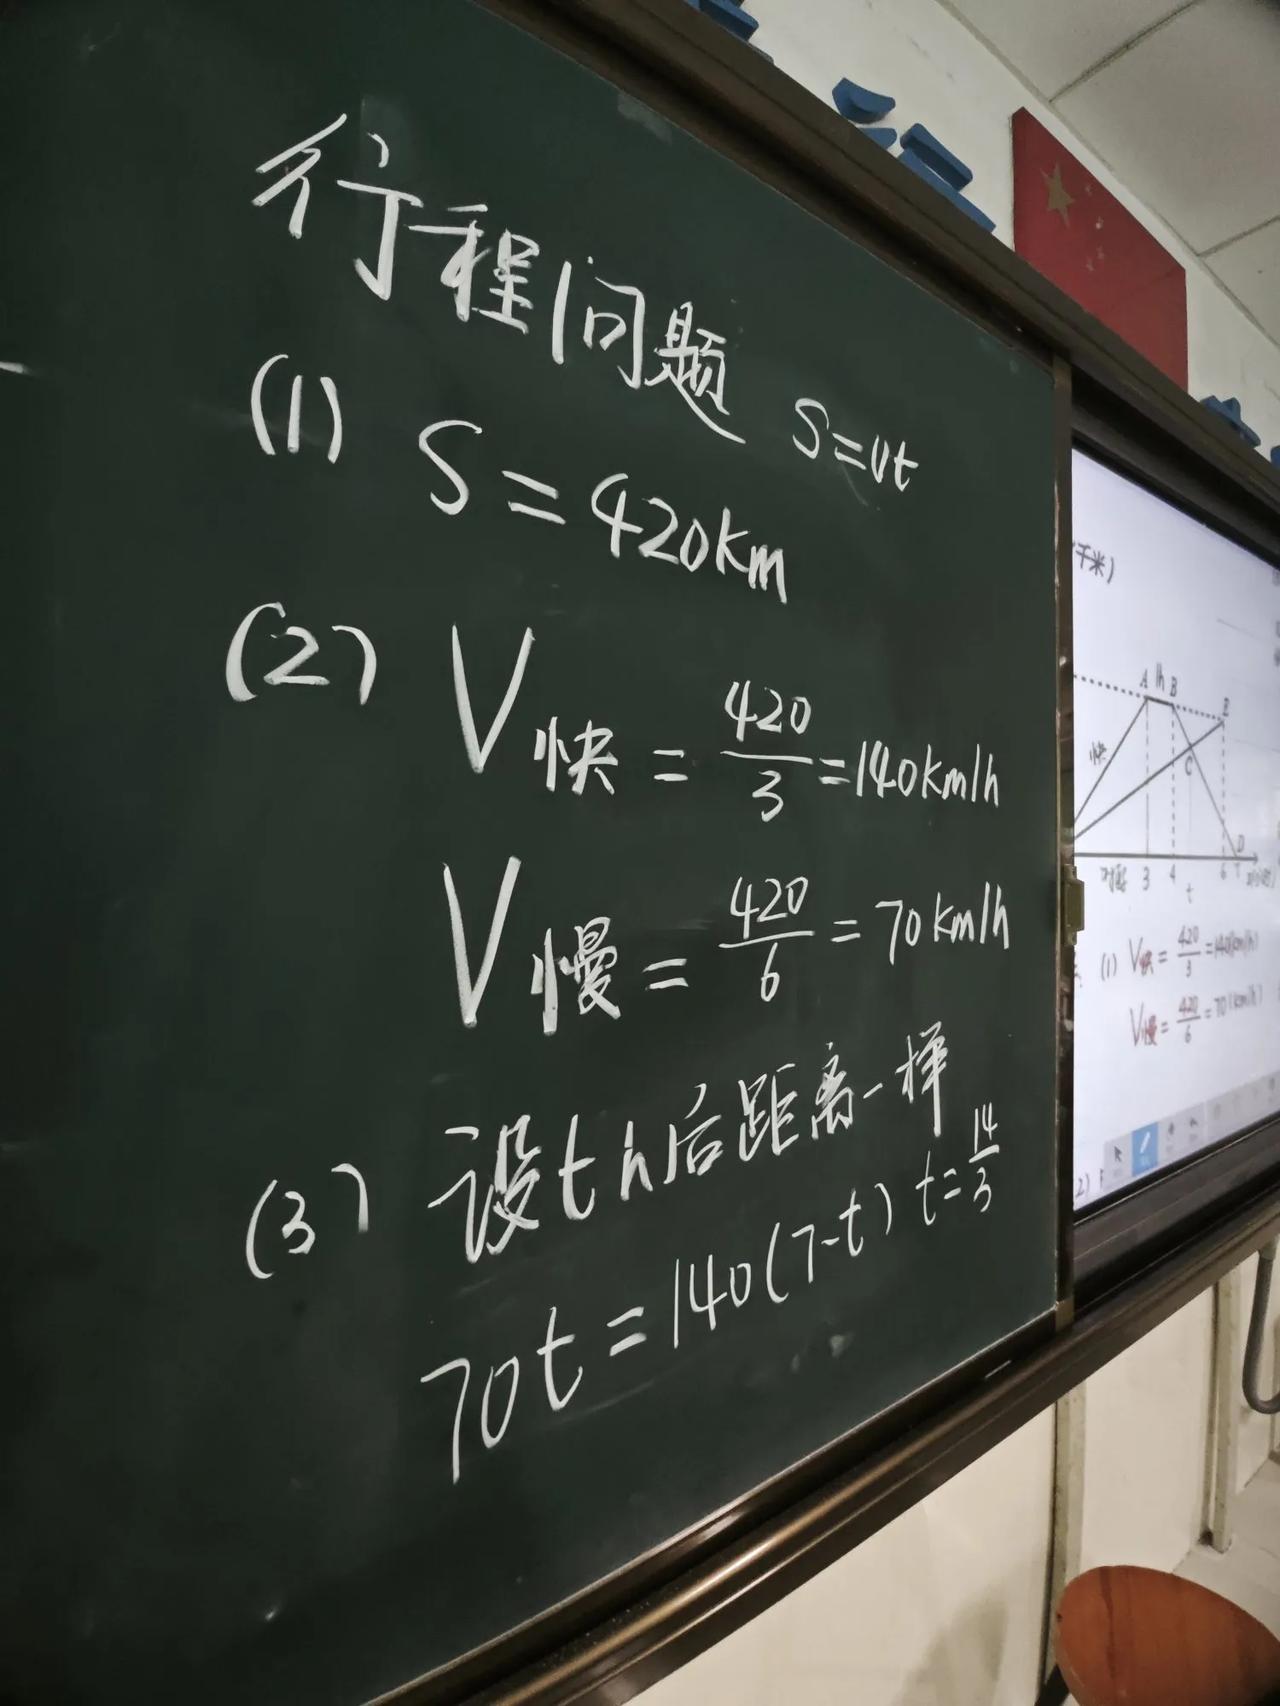 行程问题 S=vt
(1) S=420km
(2) V快 = 420/3 = 140km/h
V慢 = 420/6 = 70km/h
(3) 设t h后距离一样
70t=140(7-t) t=14/3
千米)
A 1h B
E
快
C
D
3 4 6 7
t
(1) V快 = 420/3 = 140(km/h)
V慢 = 420/6 = 70(km/h)